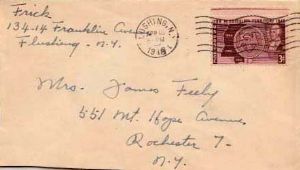 Frick
134-14 Franklin Ave
Flushing - N.Y.
FLUSHING, N.Y.
1948
3¢
Mrs. James Feely
551 Mt. Hope Avenue
Rochester 7-
N.Y.